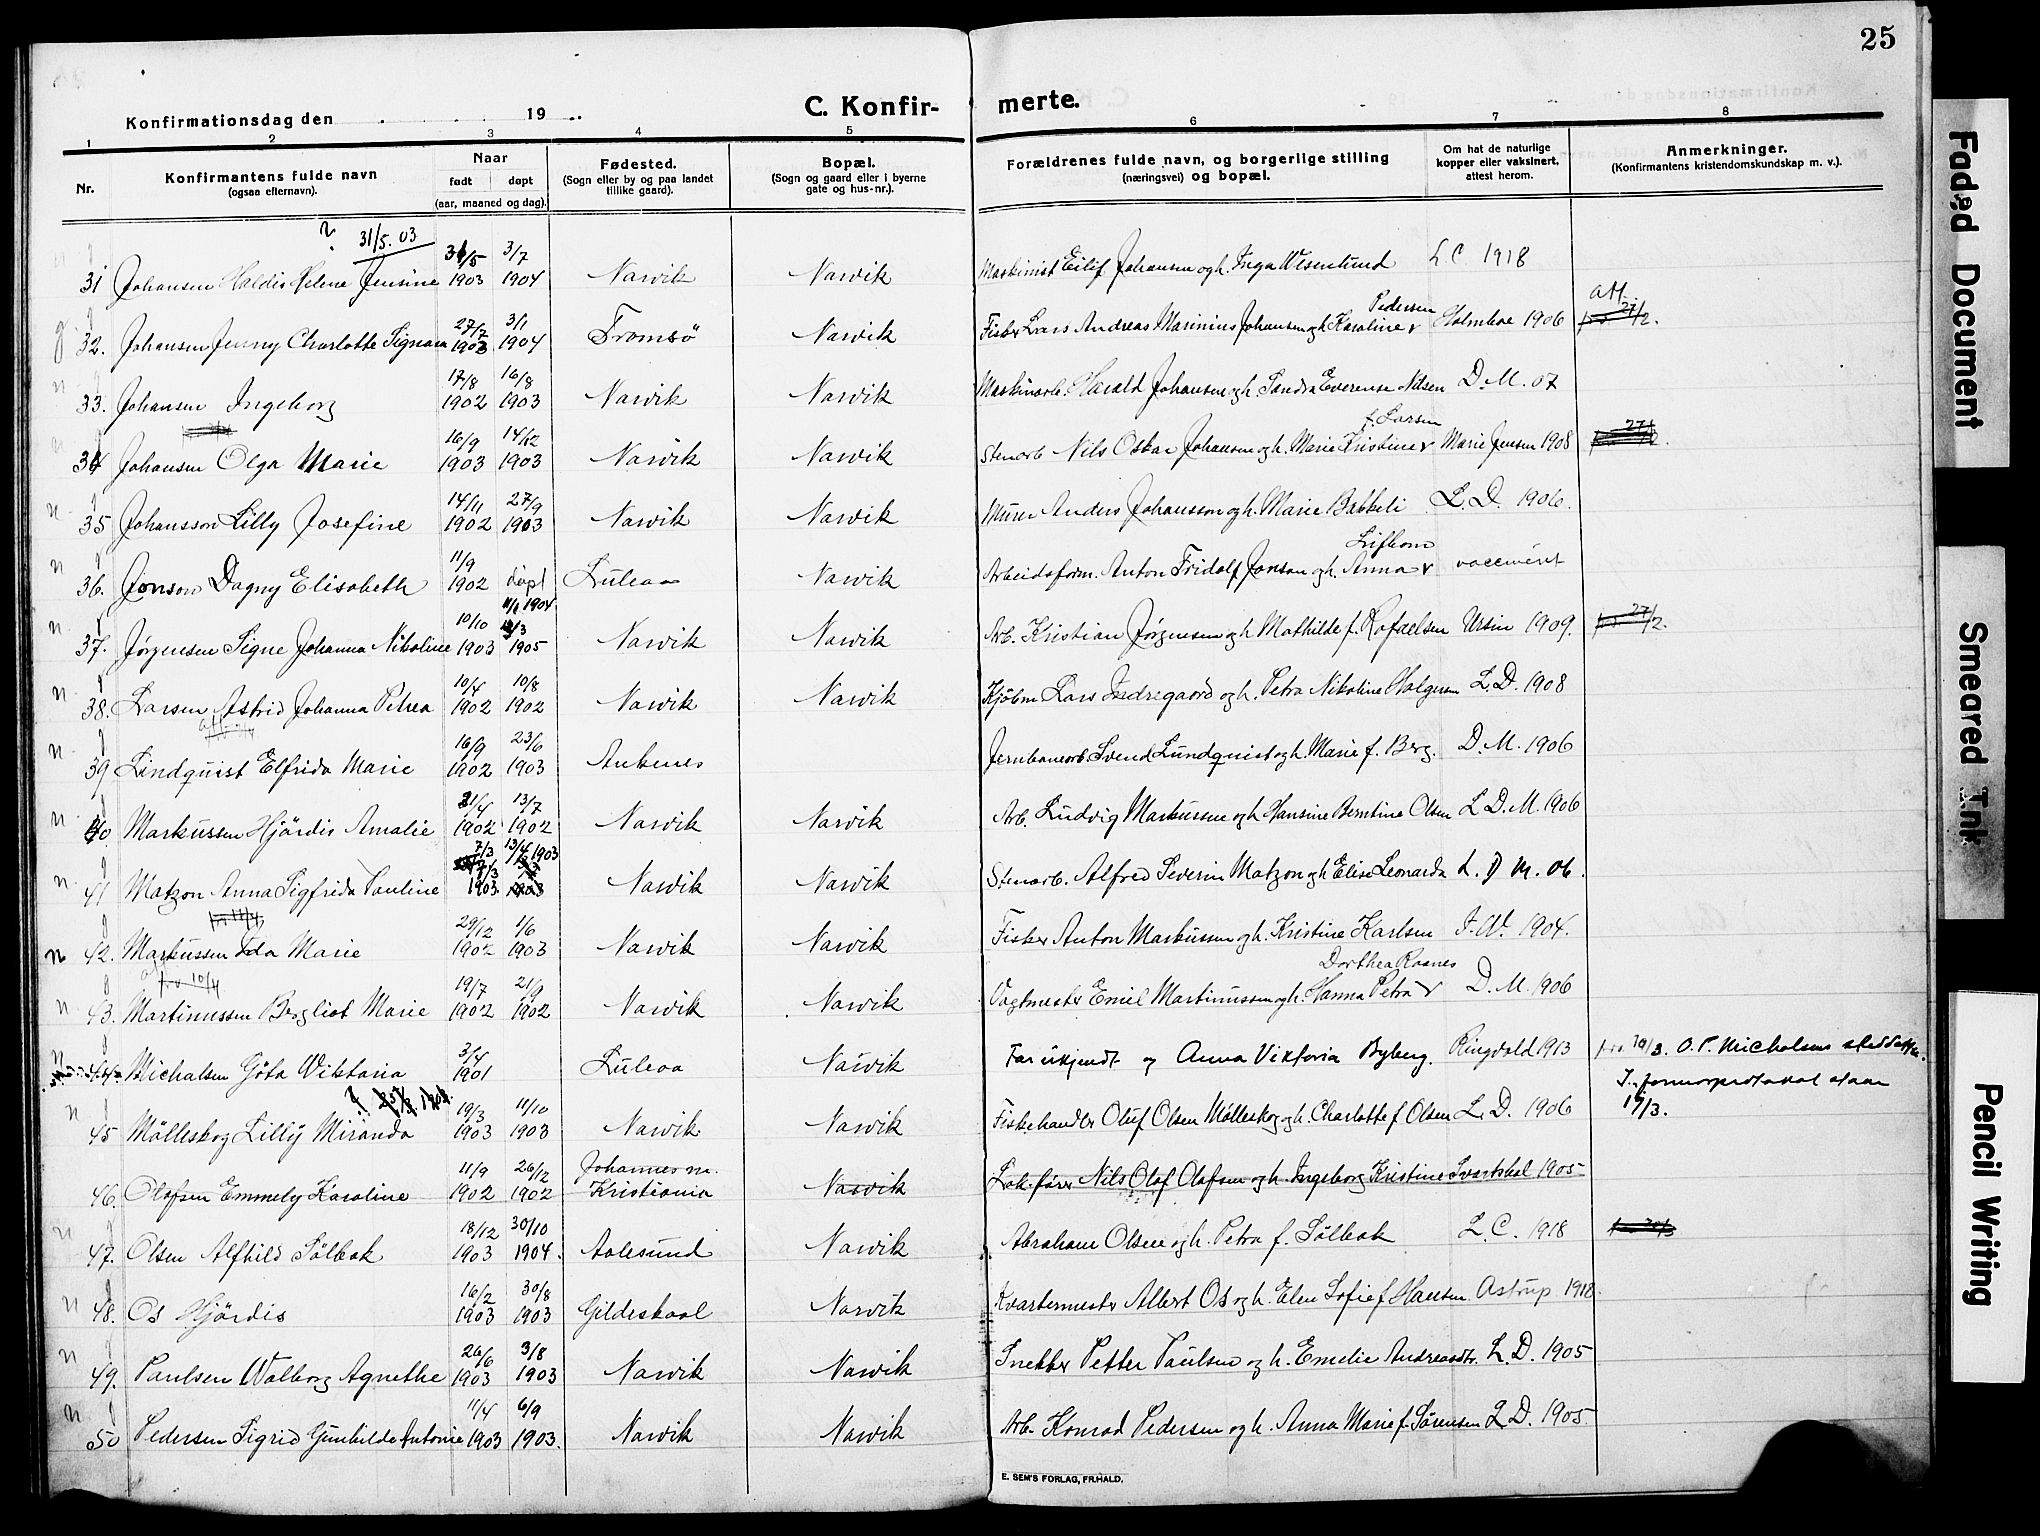 25
Konfirmationsdag den 19 C. Konfir- merte.
1 2 3 4 5 6 7 8
Nr. Konfirmantens fulde navn (ogsaa efternavn). Naar født døpt (aar, maaned og dag). Fødested. (Sogn eller by og paa landet tillike gaard). Bopæl. (Sogn og gaard eller i byerne gate og hus-nr.). Forældrenes fulde navn, og borgerlige stilling (næringsvei) og bopæl. Om hat de naturlige kopper eller vaksinert, attest herom. Anmerkninger. (Konfirmantens kristendomskundskap m. v.).
31/5.03
31/5 3/7
31 Johansen Haldis Helene Jensine 1903 1904 Narvik Narvik Maskinist Eilif Johansen og h. Inga Wesenlund L C 1918
27/7 3/1 Pedersen att. 27/2.
32. Johansen Jenny Charlotte Signora 1903 1904 Tromsö Narvik Fisker Lars Andreas Marinius Johansen og h. Karoline Holmboe 1906
17/8 16/8
33. Johansen Ingeborg 1902 1903 Narvik Narvik Maskinarb. Harald Johansen og h. Sandra Everense Nilsen D. M. 07
16/9 14/12 f. Larsen 27/2.
34 Johansen Olga Marie 1903 1903 Narvik Narvik Stenarb Nils Oskar Johansen og h. Marie Kristine Marie Jensen 1908
14/11 27/9
35 Johansson Lilly Josefine 1902 1903 Narvik Narvik Murer Anders Johansson og h. Marie Bakkeli L. D. 1906.
11/9
36. Jonson Dagny Elisabeth 1902 døpt Luleaa Narvik Arbeidsform. Anton Fridolf Jonson og h. Anna vaccineret
11/1 1904
10/10 12/3 27/2.
37. Jørgensen Signe Johanna Nikoline 1903 1905 Narvik Narvik Arb. Kristian Jørgensen og h. Mathilde f. Rafaelsen Ursin 1909.
10/4 10/8
38. Larsen Astrid Johanna Petrea 1902 1902 Narvik Narvik Kjøbm Lars Indregaard og h. Petra Nikoline Holgersen L. D. 1908
16/9 23/6
39 Lindquist Elfrida Marie 1902 1903 Ankenes Jernbanearb. Svend Lundquist og h. Marie f. Berg. D. M. 1906
21/4 13/7
40 Markussen Hjördis Amalie 1902 1902 Narvik Narvik Arb. Ludvig Markussen og h Hansine Berntine Olsen L. D. M. 1906
7/3 13/4 1903
41 Matzon Anna Sigfrida Pauline 1903. 1903 Narvik Narvik Stenarb. Alfred Severin Matzon og h Elise Leonarda L. D M. 06.
29/12 1/6
42. Markussen Ida Marie 1902 1903 Narvik Narvik Fisker Anton Markussen og h. Kristine Karlsen J. W. 1904.
19/7 21/9 Dorthea Rasnes
43. Martinussen Bergliot Marie 1902 1902 Narvik Narvik Vagtmester Emil Martinussen og h. Hanna Petra D. M. 1906
3/4
44. Michalsen Göta Viktoria 1901 Luleaa Narvik Far ukjendt og Anna Viktoria Byberg. Ringvold 1913 19/3. O. P. Michalsens steddatter.
I. fonnorprotokol staar
19/3 11/10 19/3.
45 Mölleskog Lilly Miranda 1903 1903 Narvik Narvik Fiskehandler Oluf Olsen Mölleskog og h. Charlotte f Olsen L. D. 1906
11/9 26/12 Johannes m.
46. Olofsen Emmely Karoline 1902 1902 Kristiania Narvik Lok. fører Nils Olof Olofsen og h. Ingeborg Kristine Svartskal 1905
18/12 30/10
47. Olsen Alfhild Sölbak 1903 1904. Aalesund Narvik Abraham Olsen og h. Petra f. Sölbak L. C. 1918
16/2 30/8
48. Os Hjördis 1903 1903 Gildeskaal Narvik Kvartermester Albert Os og h. Elen Sofie f Hansen Astrup 1918.
26/6 3/8
49. Paulsen Walborg Agnethe 1903 1903 Narvik Narvik Snekker Petter Paulsen og h. Emelie Andreasdtr. L. D. 1905
11/4 6/9
50 Pedersen Sigrid Gunhilde Antonie 1903 1903. Narvik Narvik Arb. Konrad Pedersen og h. Anna Marie f. Sörensen L D. 1905
E. SEM'S FORLAG, FR.HALD.
Faded Document
Smeared Ink
Pencil Writing